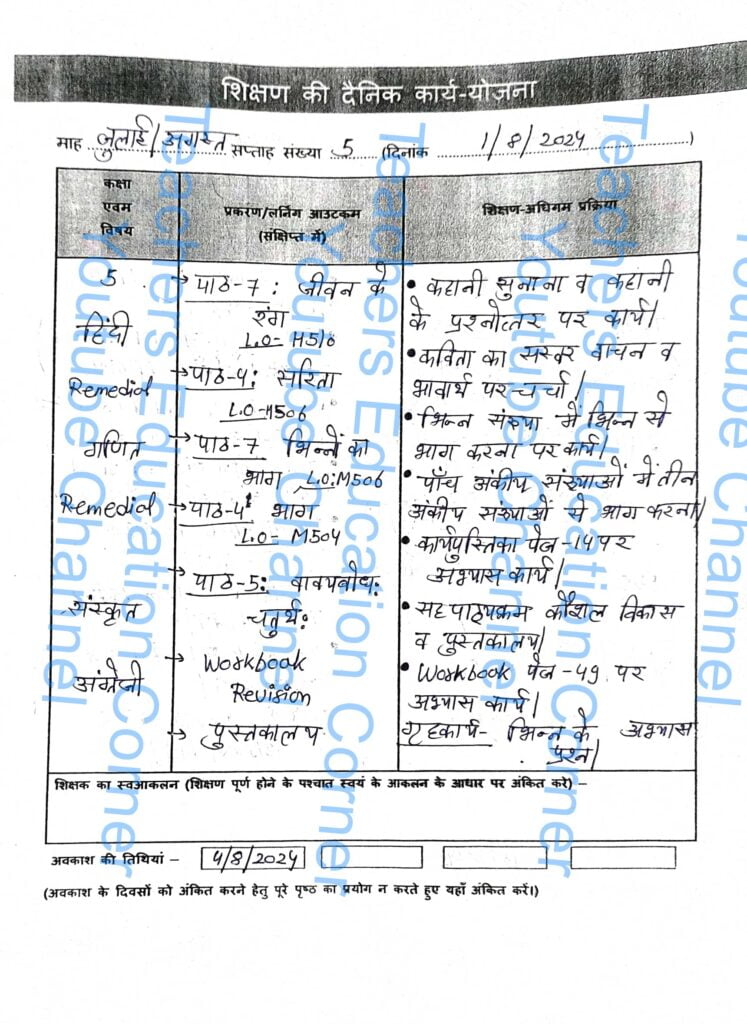 शिक्षण की दैनिक कार्य-योजना
माह जुलाई/अगस्त सप्ताह संख्या 5 (दिनांक 1/8/2024)
कक्षा
एवम
विषय
प्रकरण/लर्निंग आउटकम
(संक्षिप्त में)
शिक्षण-अधिगम प्रक्रिया
5
हिंदी
Remedial
गणित
Remedial
संस्कृत
अंग्रेजी
→ पाठ-7 : जीवन के
रंग
L.O- H516
→ पाठ-4: सरिता
L.O-H506
→ पाठ-7 भिन्नों का
भाग L.O:M506
→ पाठ-4 भाग
L.O- M504
पाठ-5: वाक्यबोध:
चतुर्थ:
→ Workbook
Revision
→ पुस्तकालय
• कहानी सुनाना व कहानी
के प्रश्नोत्तर पर कार्य।
• कविता का सस्वर वाचन व
भावार्थ पर चर्चा।
• भिन्न संख्या में भिन्न से
भाग करना पर कार्य।
• पाँच अंकीय संख्याओं में तीन
अंकीय संख्याओं से भाग करना।
• कार्यपुस्तिका पेज -14 पर
अभ्यास कार्य।
• सहपाठ्यक्रम कौशल विकास
व पुस्तकालय।
• Workbook पेज -49 पर
अभ्यास कार्य।
गृहकार्य- भिन्न के अभ्यास
प्रश्न।
शिक्षक का स्वआकलन (शिक्षण पूर्ण होने के पश्चात स्वयं के आकलन के आधार पर अंकित करे) –
अवकाश की तिथियां – 4/8/2024
(अवकाश के दिवसों को अंकित करने हेतु पूरे पृष्ठ का प्रयोग न करते हुए यहाँ अंकित करें।)
Teachers Education Corner
Youtube Channel
Teachers Education Corner
Youtube Channel
Teachers Education Corner
Youtube Channel